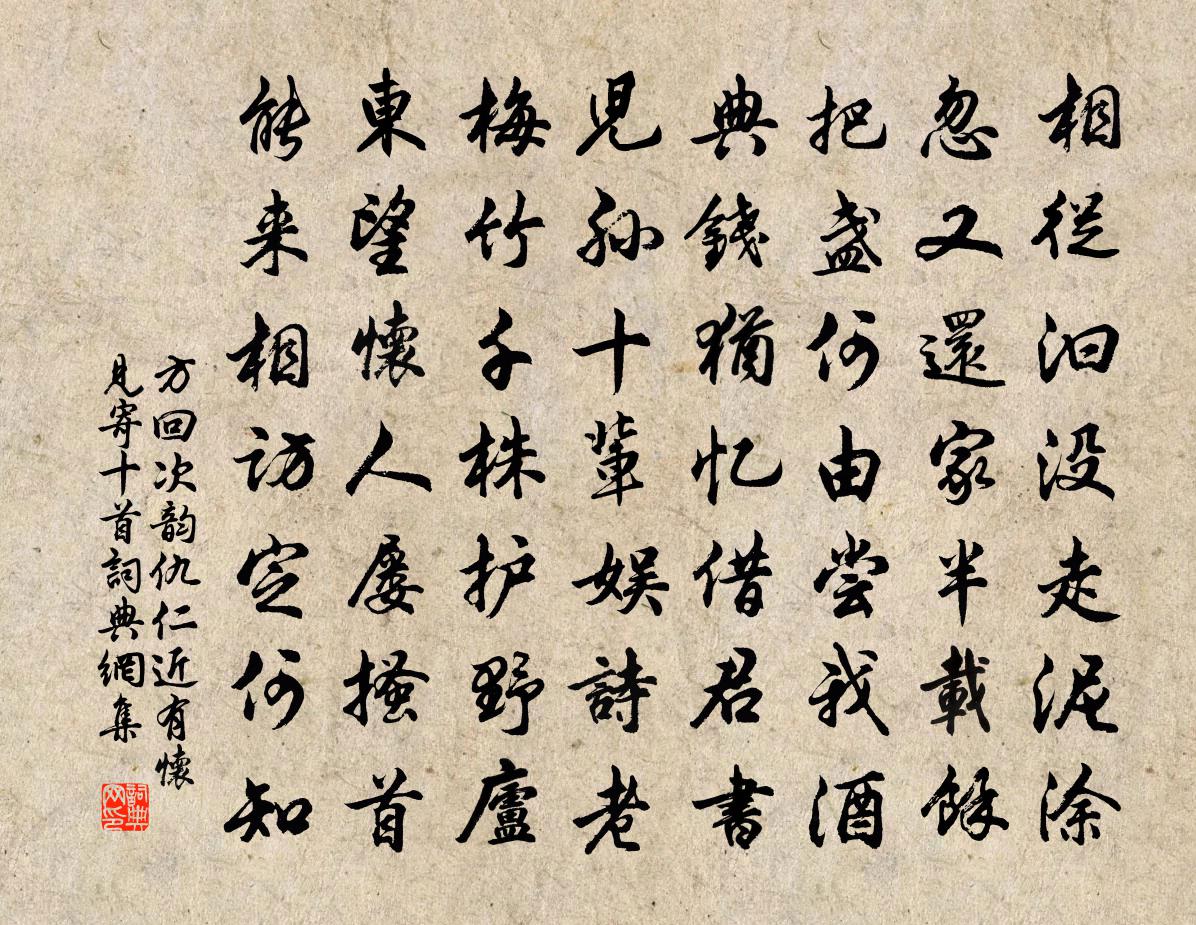 相從汩没走泥涂
忽又還家半載餘
把盞何由嘗我酒
典錢猶忆借君書
児孫十輩娱詩老
梅竹千株护野廬
東望懷人屡搔首
能来相訪定何知
方回次韵仇仁近有懷
見寄十首詞典網集
詞典
网印